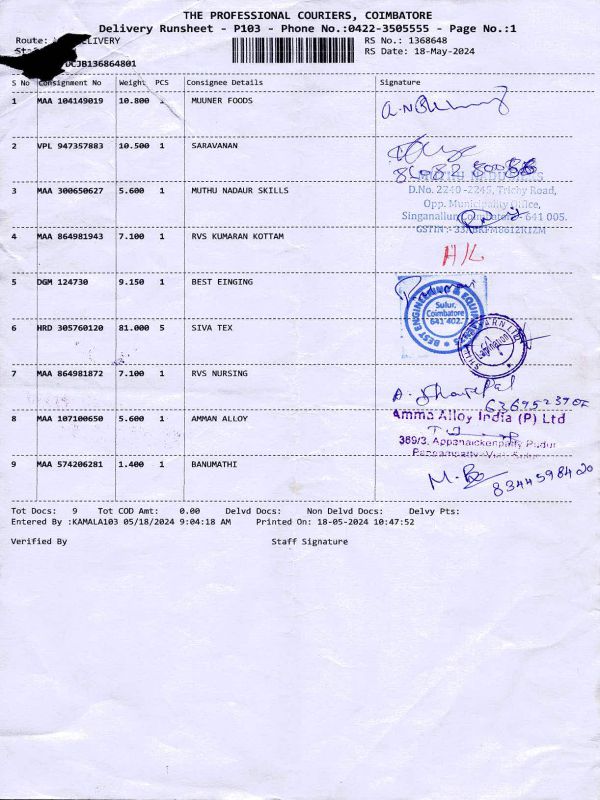 THE PROFESSIONAL COURIERS, COIMBATORE
Delivery Runsheet - P103 - Phone No.:0422-3505555 - Page No.:1
Route: DELIVERY RS No.: 1368648
RS Date: 18-May-2024
UCJB136864801
S No Consignment No Weight PCS Consignee Details Signature
1 MAA 104149019 10.800 1 MUUNER FOODS
2 VPL 947357883 10.500 1 SARAVANAN
3 MAA 300650627 5.600 1 MUTHU NADAUR SKILLS
D.No. 2240 -2245, Trichy Road,
Opp. Municipality Office,
Singanallur, Coimbatore - 641 005.
4 MAA 864981943 7.100 1 RVS KUMARAN KOTTAM
H/L
5 DGM 124730 9.150 1 BEST EINGING
BEST ENGINEERING & EQUIPMENTS
Sulur,
Coimbatore
641 402.
6 HRD 305760120 81.000 5 SIVA TEX
7 MAA 864981872 7.100 1 RVS NURSING
8 MAA 107100650 5.600 1 AMMAN ALLOY
Amma Alloy India (P) Ltd
369/3, Appanaickenpatty Pudur
9 MAA 574206281 1.400 1 BANUMATHI
8344598420
Tot Docs: 9 Tot COD Amt: 0.00 Delvd Docs: Non Delvd Docs: Delvy Pts:
Entered By :KAMALA103 05/18/2024 9:04:18 AM Printed On: 18-05-2024 10:47:52
Verified By Staff Signature